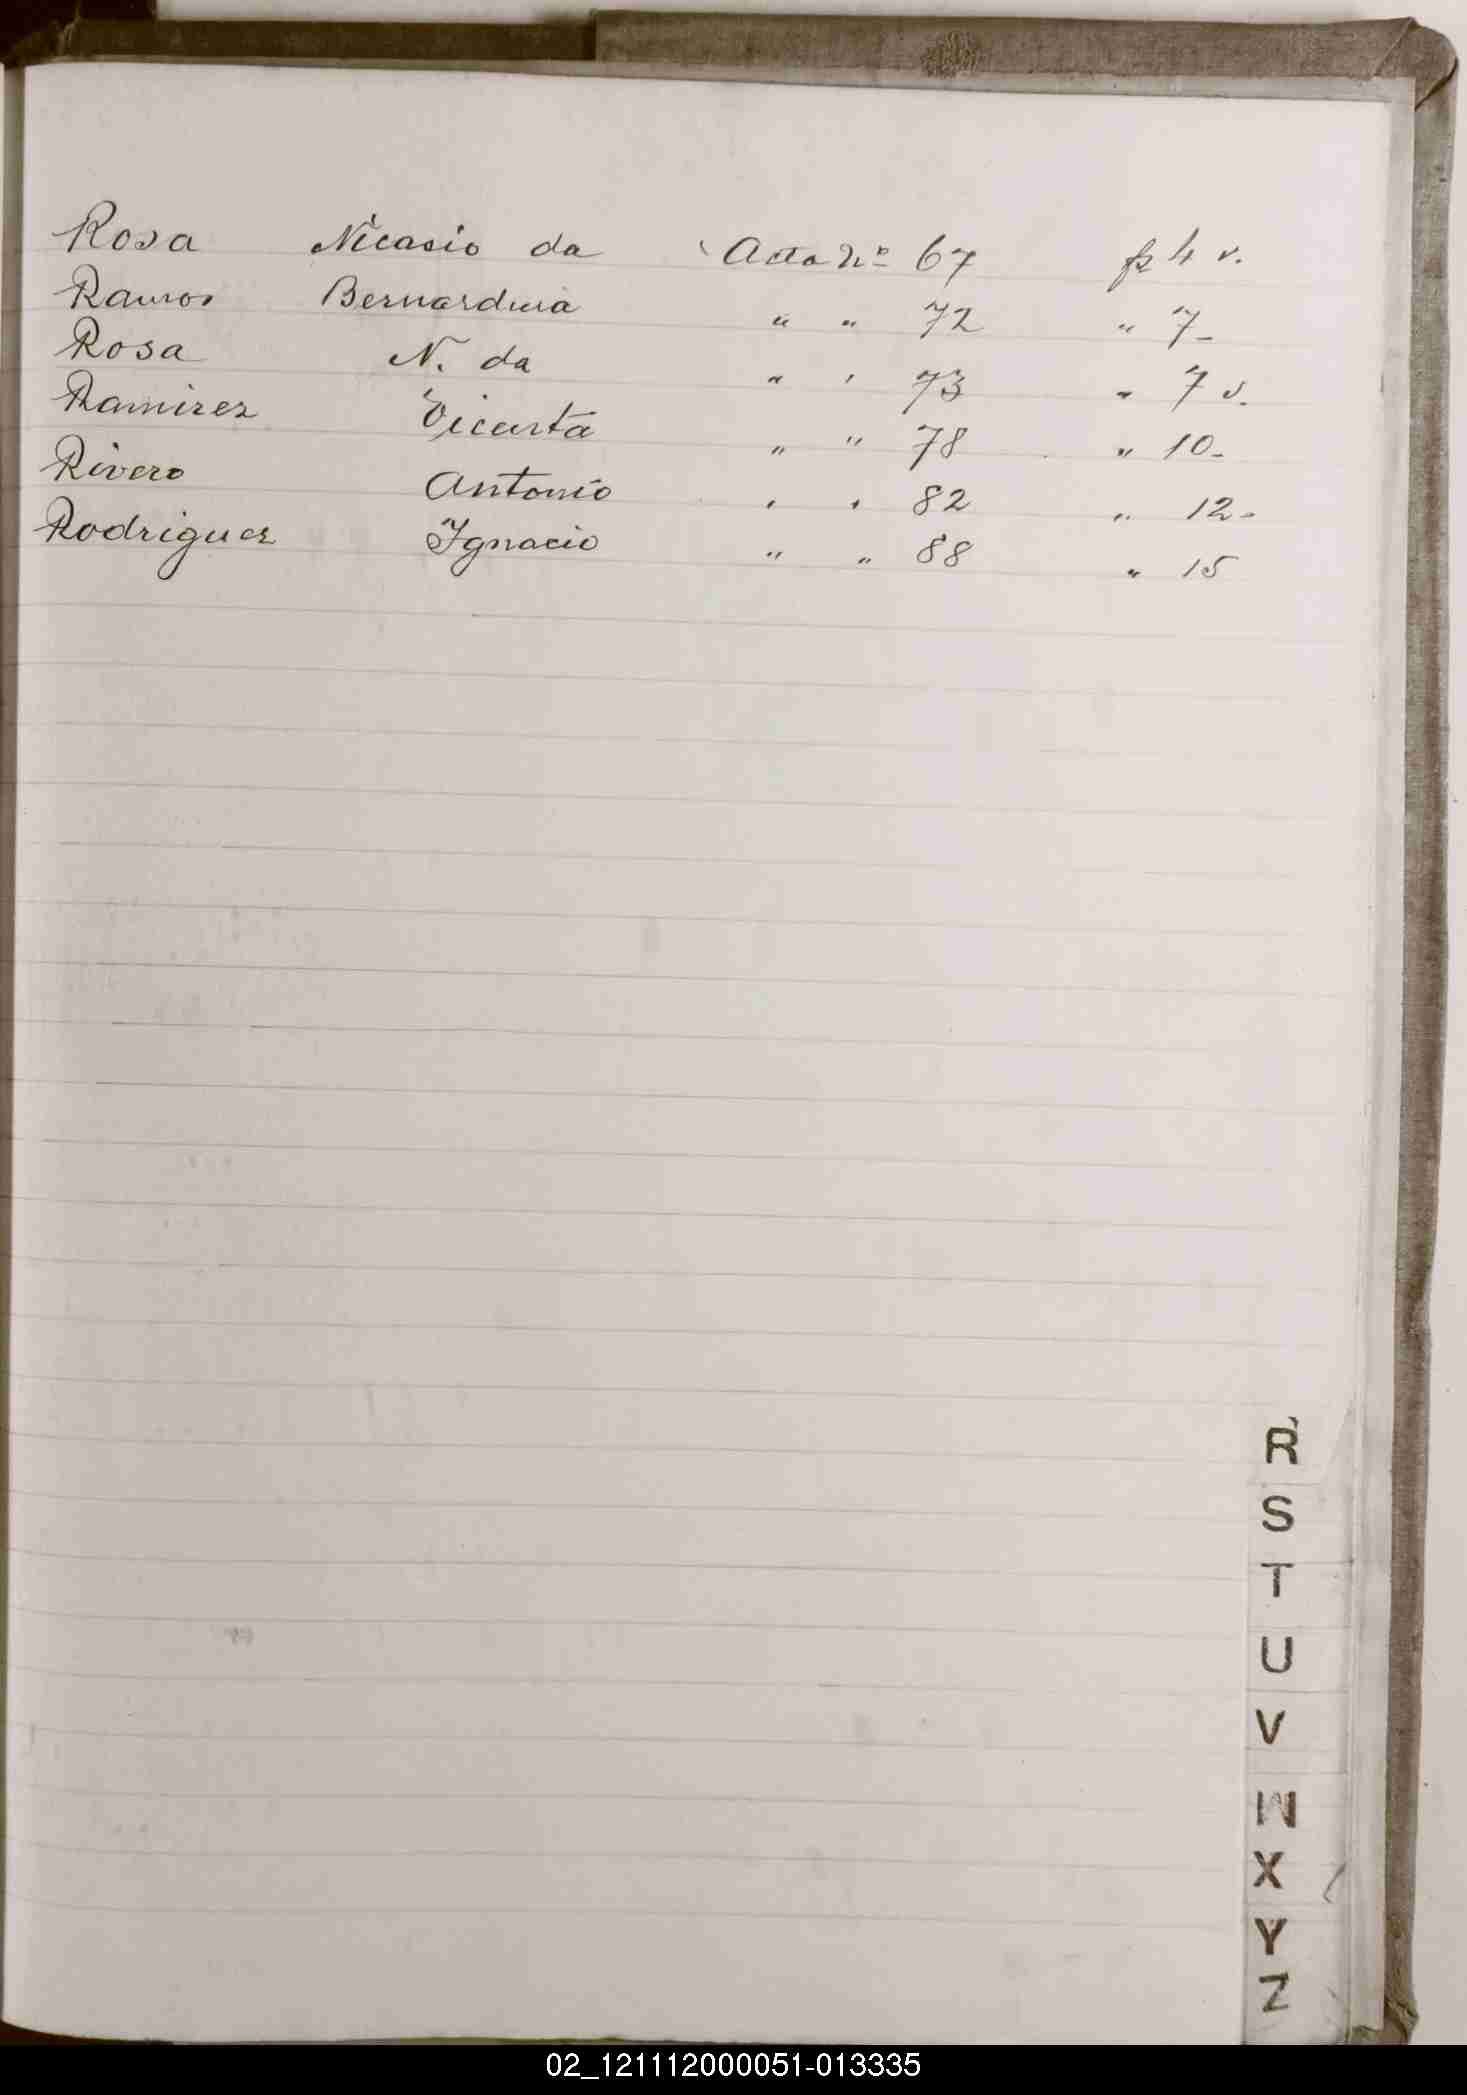 Rosa Nicasio da Acta Nº 67 fs 4 v.
Ramos Bernardina " " 72 " 7-
Rosa N. da " " 73 " 7 v.
Ramirez Vicenta " " 78 " 10-
Rivero Antonio " " 82 " 12-
Rodriguez Ignacio " " 88 " 15
R
S
T
U
V
W
X
Y
Z
02_121112000051-013335